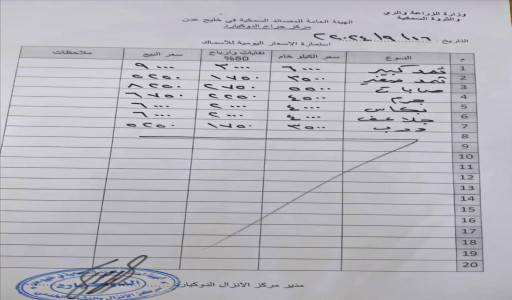 وزارة الزراعة والري
والثروة السمكية
الهيئة العامة للمصائد السمكية في خليج عدن
مركز حراج الدوكيارد
التاريخ: ٢٠٢٤/٩/١٦
استمارة الاسعار اليومية للأسماك
م النوع سعر الكيلو خام نفقات وارباح 50% سعر البيع ملاحظات
1 ثمد كبير ٦٠٠٠ ٣٠٠٠ ٩٠٠٠
2 ثمد صغير ٣٥٠٠ ١٧٥٠ ٥٢٥٠
3 ٥٥٠٠ ٢٧٥٠ ٨٢٥٠
4 ٤٥٠٠ ٢٢٥٠ ٦٧٥٠
5 ٤٠٠٠ ٢٠٠٠ ٦٠٠٠
6 ٤٠٠٠ ٢٠٠٠ ٦٠٠٠
7 ٣٥٠٠ ١٧٥٠ ٥٢٥٠
8
9
10
11
12
13
14
15
16
17
18
19
20
مدير مركز الانزال الدوكيارد